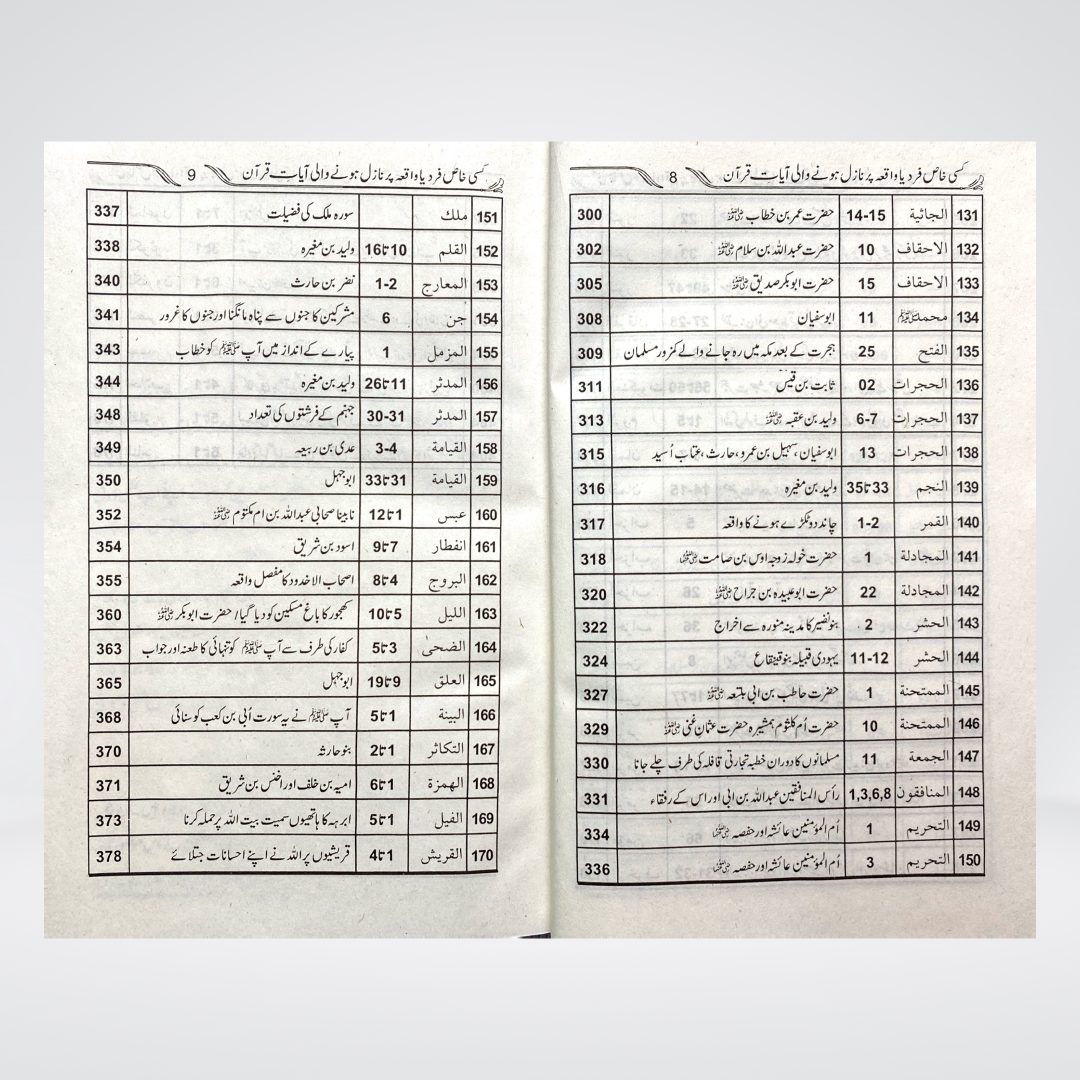 8 کسی خاص فرد یا واقعہ پر نازل ہونے والی آیات قرآن
131 الجاثية 14-15 حضرت عمر بن خطاب رضی اللہ عنہ 300
132 الاحقاف 10 حضرت عبداللہ بن سلام رضی اللہ عنہ 302
133 الاحقاف 15 حضرت ابوبکر صدیق رضی اللہ عنہ 305
134 محمد ﷺ 11 ابوسفیان 308
135 الفتح 25 ہجرت کے بعد مکہ میں رہ جانے والے کمزور مسلمان 309
136 الحجرات 02 ثابت بن قیس 311
137 الحجرات 6-7 ولید بن عقبہ رضی اللہ عنہ 313
138 الحجرات 13 ابوسفیان، سہیل بن عمرو، حارث، عتاب اُسید 315
139 النجم 33تا35 ولید بن مغیرہ 316
140 القمر 1-2 چاند دو ٹکڑے ہونے کا واقعہ 317
141 المجادلة 1 حضرت خولہ زوجہ اوس بن صامت رضی اللہ عنہا 318
142 المجادلة 22 حضرت ابوعبیدہ بن جراح رضی اللہ عنہ 320
143 الحشر 2 بنو نضیر کا مدینہ منورہ سے اخراج 322
144 الحشر 11-12 یہودی قبیلہ بنو قینقاع 324
145 الممتحنة 1 حضرت حاطب بن ابی بلتعہ رضی اللہ عنہ 327
146 الممتحنة 10 حضرت اُم کلثوم ہمشیرہ حضرت عثمان غنی رضی اللہ عنہ 329
147 الجمعة 11 مسلمانوں کا دوران خطبہ تجارتی قافلہ کی طرف چلے جانا 330
148 المنافقون 1,3,6,8 رأس المنافقین عبداللہ بن ابی اور اس کے رفقاء 331
149 التحريم 1 اُم المؤمنین عائشہ اور حفصہ رضی اللہ عنہا 334
150 التحريم 3 اُم المؤمنین عائشہ اور حفصہ رضی اللہ عنہا 336
9 کسی خاص فرد یا واقعہ پر نازل ہونے والی آیات قرآن
151 ملك سورہ ملک کی فضیلت 337
152 القلم 10تا16 ولید بن مغیرہ 338
153 المعارج 1-2 نضر بن حارث 340
154 جن 6 مشرکین کا جنوں سے پناہ مانگنا اور جنوں کا غرور 341
155 المزمل 1 پیارے کے انداز میں آپ ﷺ کو خطاب 343
156 المدثر 11تا26 ولید بن مغیرہ 344
157 المدثر 30-31 جہنم کے فرشتوں کی تعداد 348
158 القيامة 3-4 عدی بن ربیعہ 349
159 القيامة 31تا33 ابوجہل 350
160 عبس 1تا12 نابینا صحابی عبداللہ بن ام مکتوم رضی اللہ عنہ 352
161 انفطار 7تا9 اسود بن شریق 354
162 البروج 4تا8 اصحاب الاخدود کا مفصل واقعہ 355
163 الليل 5تا10 کھجور کا باغ مسکین کو دیا گیا/ حضرت ابوبکر رضی اللہ عنہ 360
164 الضحىٰ 3تا5 کفار کی طرف سے آپ ﷺ کو تنہائی کا طعنہ اور جواب 363
165 العلق 9تا19 ابوجہل 365
166 البينة 1تا5 آپ ﷺ نے یہ سورت اُبی بن کعب کو سنائی 368
167 التكاثر 1تا2 بنو حارثہ 370
168 الهمزة 1تا6 امیہ بن خلف اور اخنس بن شریق 371
169 الفيل 1تا5 ابرہہ کا ہاتھیوں سمیت بیت اللہ پر حملہ کرنا 373
170 القريش 1تا4 قریشیوں پر اللہ نے اپنے احسانات جتلائے 378